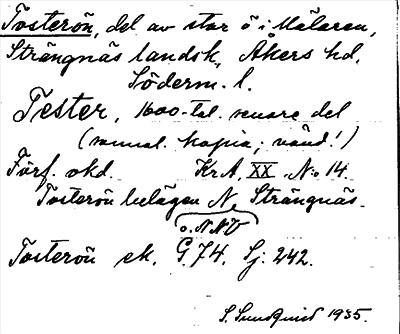 Tosterön, del av stor ö i Mälaren,
Strängnäs landsk, Åkers hd,
Söderm. l.
Tester, 1600-tal. senare del
(samml. kopia; vänd!)
Förf. okd. Kr.A. XX. N:o 14.
Tosterön belägen N. Strängnäs.
o. NNV
Tosterön ek. G. 74. Sj: 242.
S. Sundquist 1935.